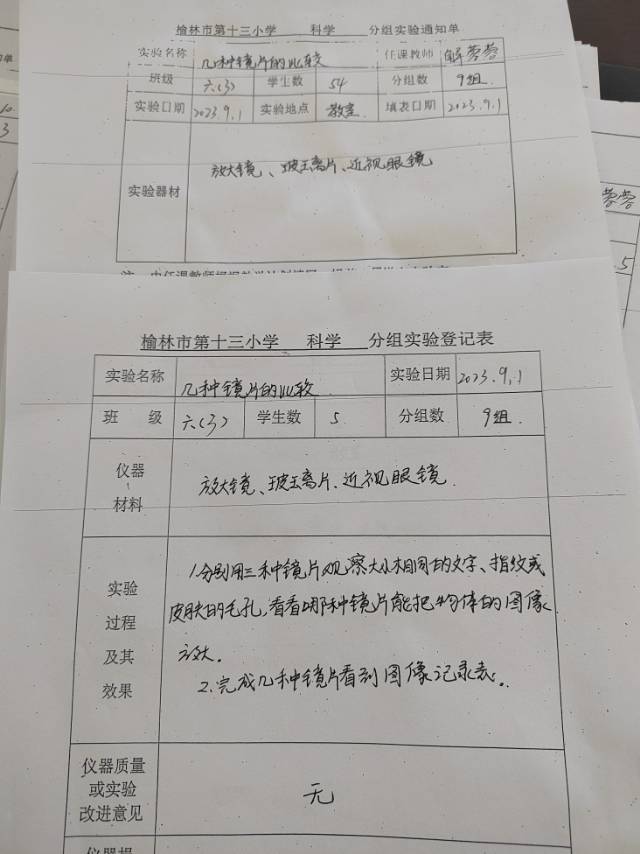 榆林市第十三小学 科学 分组实验通知单
实验名称 几种镜片的比较 任课教师 解蓉蓉
班级 六(3) 学生数 54 分组数 9组
实验日期 2023.9.1 实验地点 教室 填表日期 2023.9.1
实验器材 放大镜、玻璃片、近视眼镜
榆林市第十三小学 科学 分组实验登记表
实验名称 几种镜片的比较 实验日期 2023.9.1
班级 六(3) 学生数 5 分组数 9组
仪器
材料
放大镜、玻璃片、近视眼镜
实验
过程
及其
效果
1.分别用三种镜片观察大小相同的文字、指纹或
皮肤的毛孔,看看哪种镜片能把物体的图像
放大。
2.完成几种镜片看到图像记录表。
仪器质量
或实验
改进意见
无